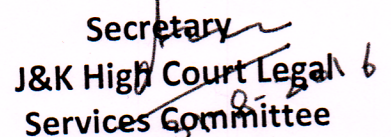 Secretary
J&K High Court Legal
Services Committee